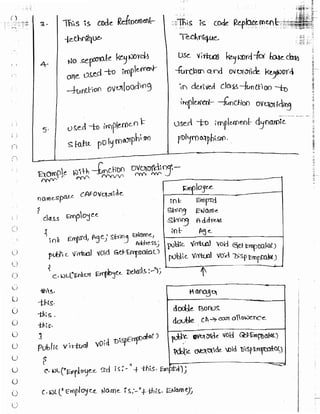 3. This is code Refinement
technique.
This is code Replacement
Technique.
4. No seperate keywords
are used to implement
function overloading
Use virtual keyword for base class
function and override keyword
in derived class function to
implement function overriding
5. used to implement
static polymorphism
used to implement dynamic
polymorphism.
Example with function overriding:-
namespace CAFOverride
{
class Employee
{
int Empid, Age; string EName,
Address;
public virtual void GetEmpData()
{
C.WL("Enter Employee Details:-");
this.
this.
this.
this.
}
public virtual void DispEmpData()
{
C.WL("Employee Id is:-"+ this.EmpId);
C.WL("Employee Name is:-"+ this.EName);
Employee
int EmpId
string EName
string Address
int Age
public virtual void GetEmpData()
public virtual void DispEmpData()
Manager
double Bonus
double CA → car allowance
public override void GetEmpData()
public override void DispEmpData()